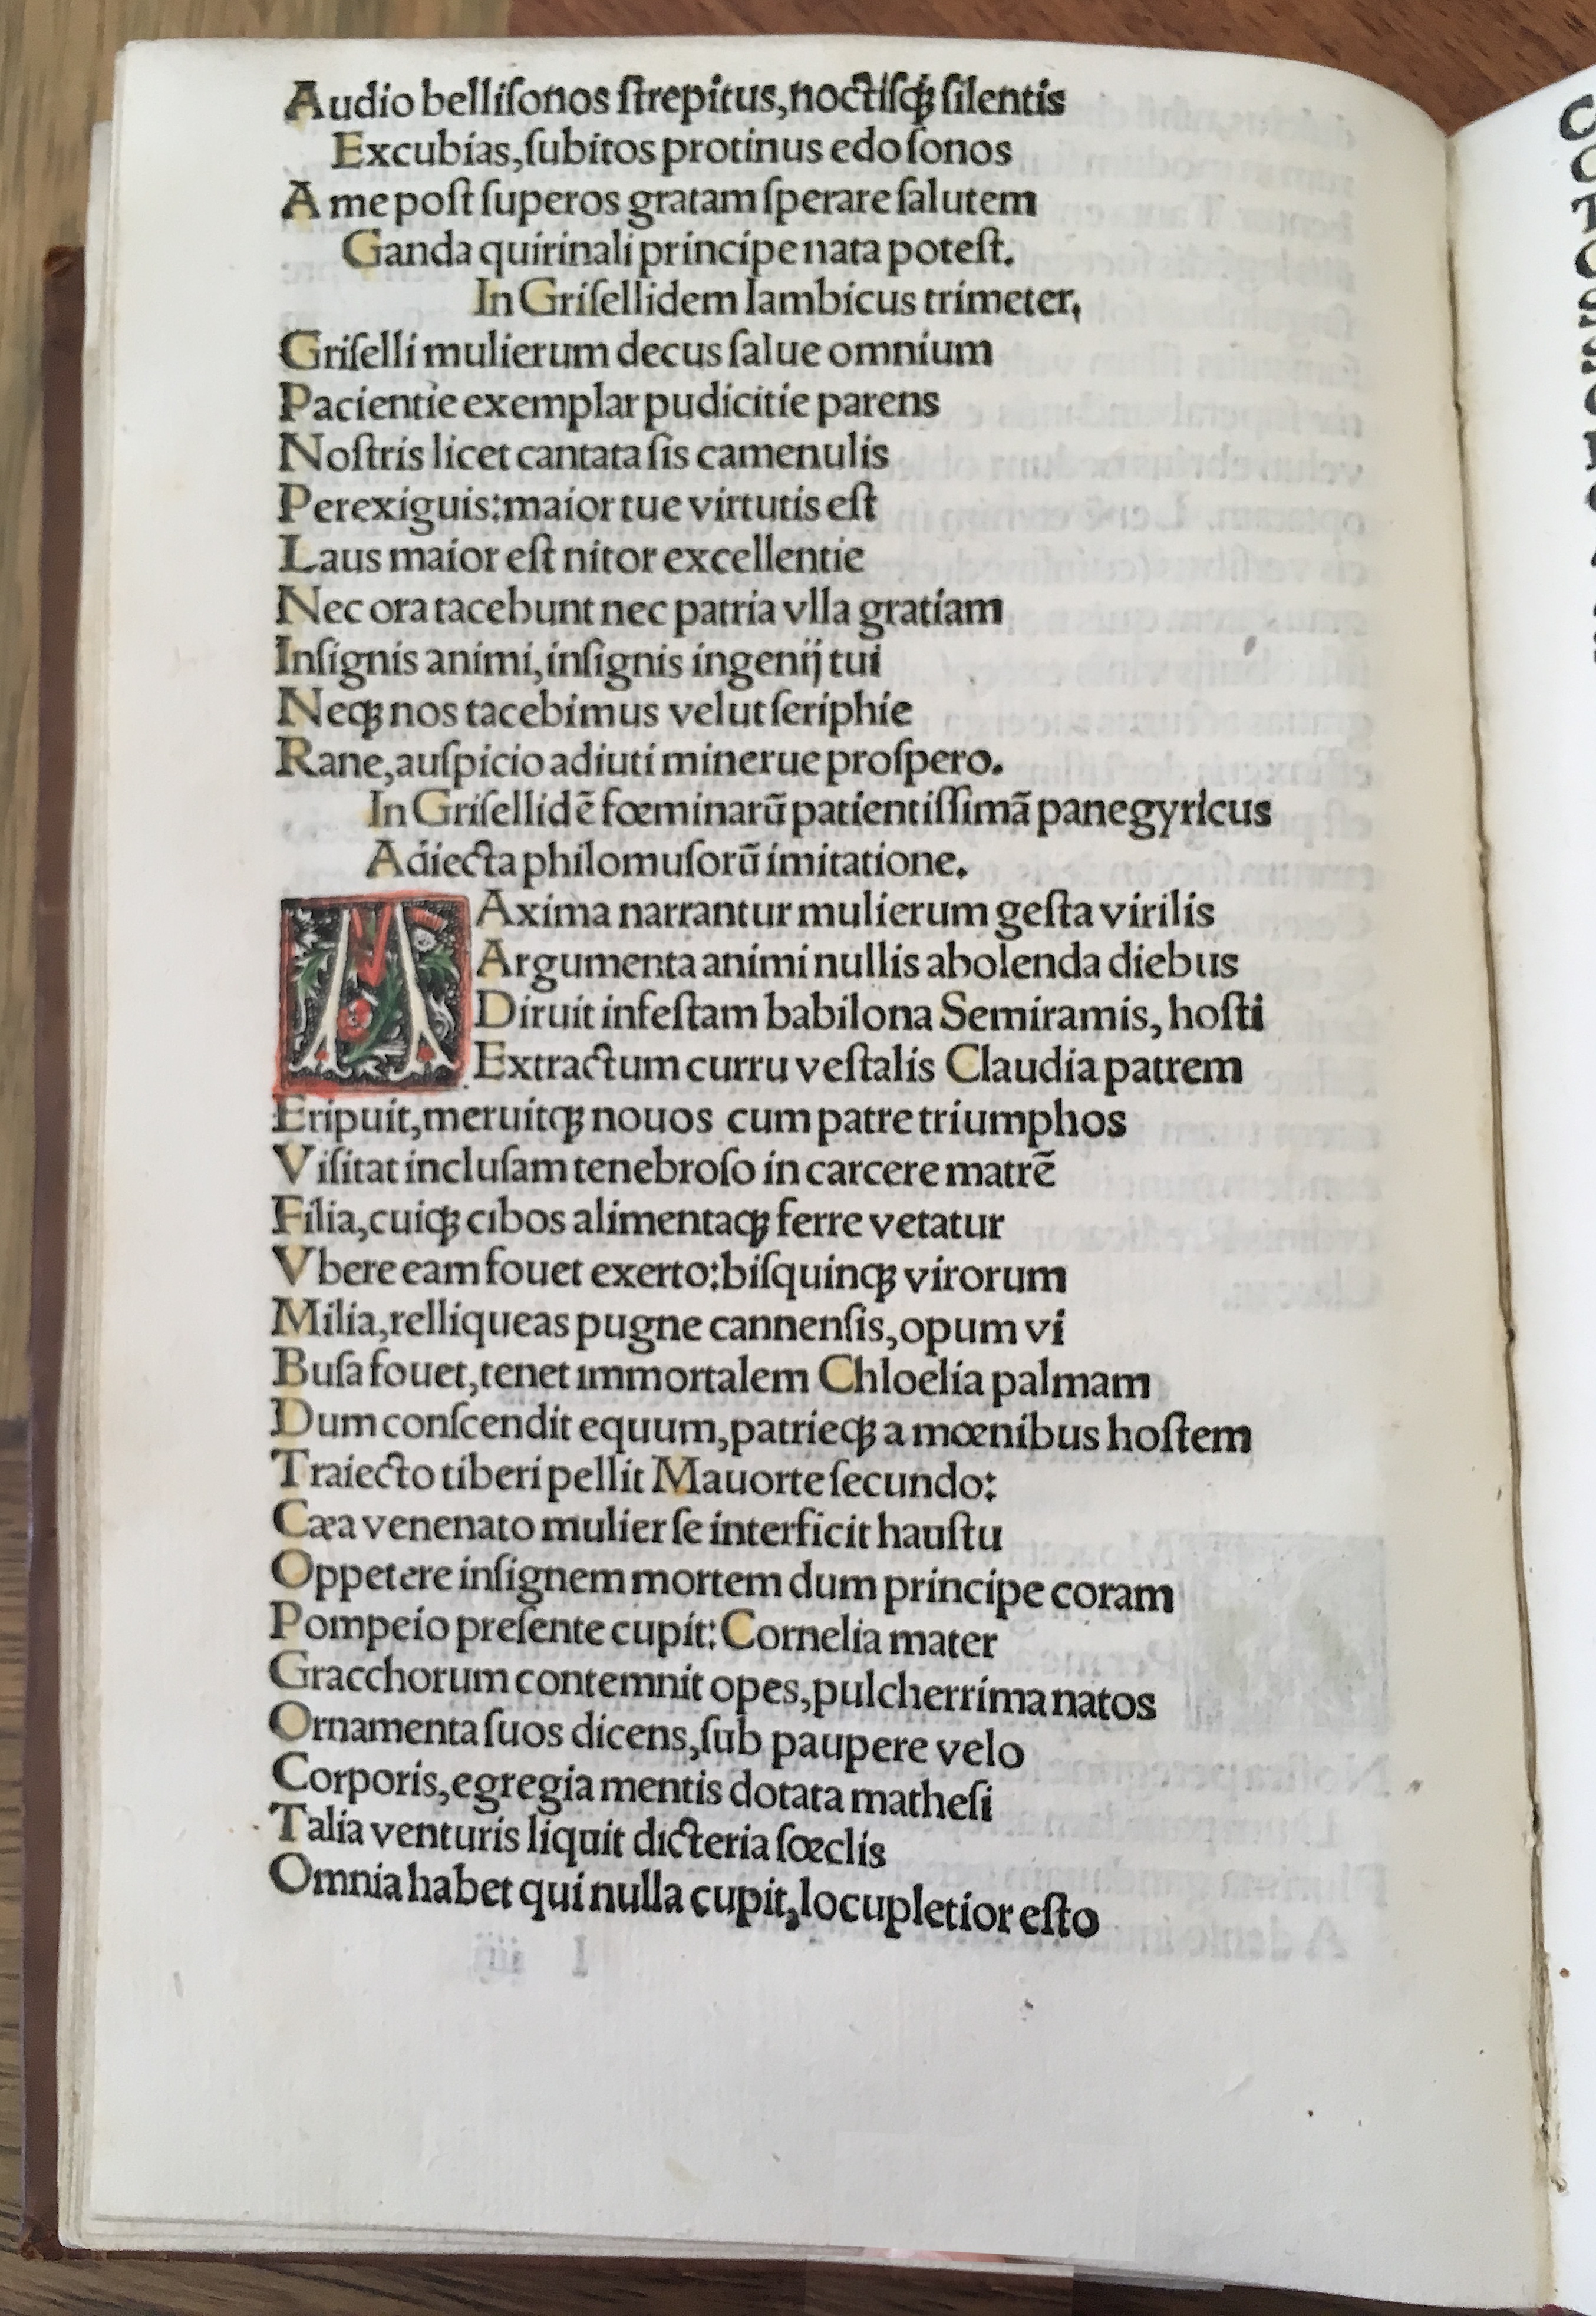 Audio belliſonos ſtrepitus,noctiſqꝫ ſilentis
Excubias,ſubitos protinus edo ſonos
A me poſt ſuperos gratam ſperare ſalutem
Ganda quirinali principe nata poteſt.
In Griſellidem Iambicus trimeter,
Griſelli mulierum decus ſalue omnium
Pacientie exemplar pudicitie parens
Noſtris licet cantata ſis camenulis
Perexiguis:maior tue virtutis eſt
Laus maior eſt nitor excellentie
Nec ora tacebunt nec patria vlla gratiam
Inſignis animi,inſignis ingenij tui
Neqꝫ nos tacebimus velut ſeriphie
Rane,auſpicio adiuti minerue proſpero.
In Griſellidē fœminarū patientiſſimā panegyricus
Adiecta philomuſorū imitatione.
MAxima narrantur mulierum geſta virilis
Argumenta animi nullis abolenda diebus
Diruit infeſtam babilona Semiramis, hoſti
Extractum curru veſtalis Claudia patrem
Eripuit,meruitqꝫ nouos cum patre triumphos
Viſitat incluſam tenebroſo in carcere matrē
Filia,cuiqꝫ cibos alimentaqꝫ ferre vetatur
Vbere eam fouet exerto:biſquinqꝫ virorum
Milia,relliqueas pugne cannenſis,opum vi
Buſa fouet,tenet immortalem Chloelia palmam
Dum conſcendit equum,patrieqꝫ a mœnibus hoſtem
Traiecto tiberi pellit Mauorte ſecundo:
Cæa venenato mulier ſe interficit hauſtu
Oppetere inſignem mortem dum principe coram
Pompeio preſente cupit:Cornelia mater
Gracchorum contemnit opes,pulcherrima natos
Ornamenta ſuos dicens,ſub paupere velo
Corporis,egregia mentis dotata matheſi
Talia venturis liquit dicteria ſœclis
Omnia habet qui nulla cupit,locupletior eſto